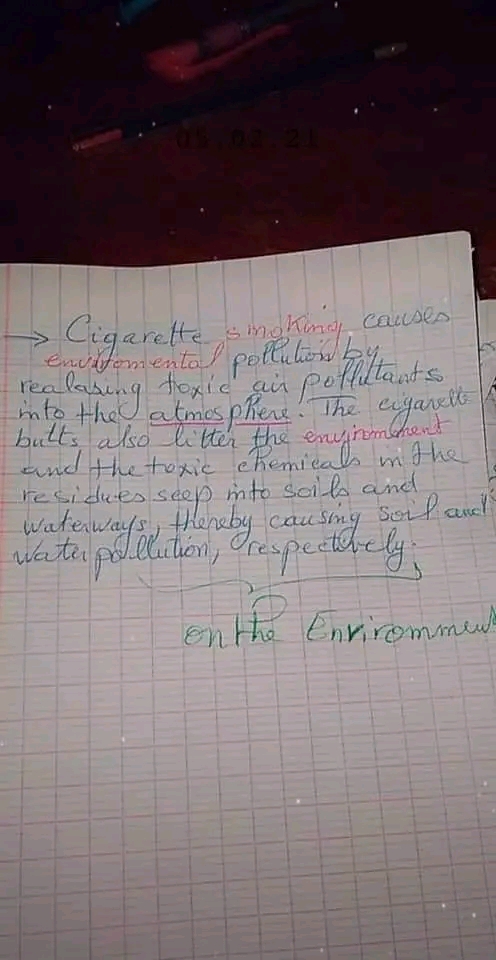 05.02.21
→ Cigarette smoking causes
enviromental pollution by
realasing toxic air pollutants
into the atmosphere. The cigarette
butts also litter the environment
and the toxic chemicals in the
residues seep into soils and
waterways, thereby causing soil and
water pollution, respectively.
on the Environment